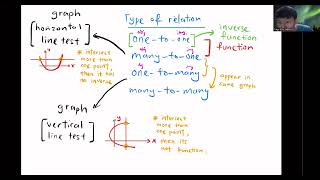 graph
horizontal
line test
* intersect
more than
one point,
then it has
no inverse
y
x
Type of relation
one-to-one
many-to-one
one-to-many
many-to-many
inverse
function
function
appear in
same graph
graph
vertical
line test
y
x
* intersect
more than
one point,
then its
not function.